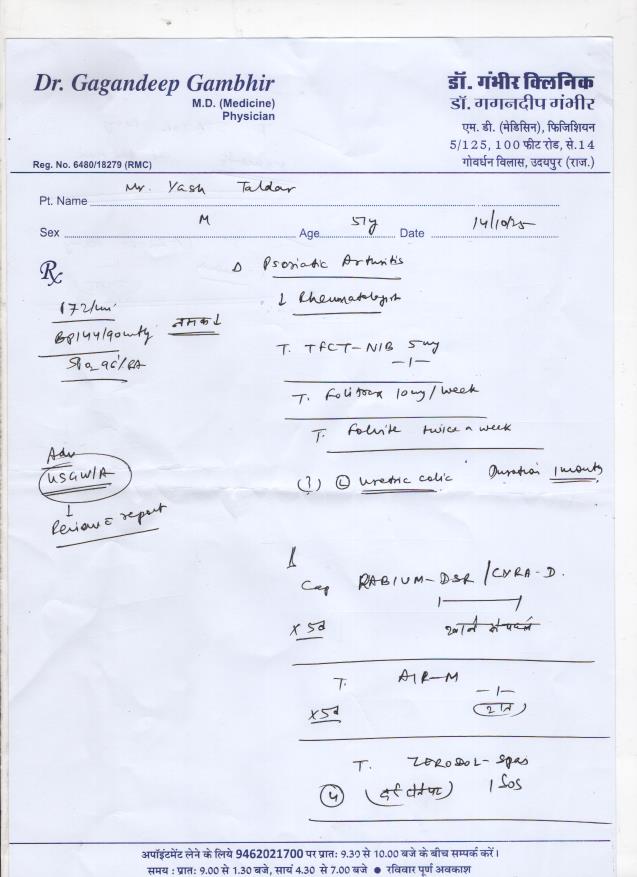 Dr. Gagandeep Gambhir
M.D. (Medicine)
Physician
Reg. No. 6480/18279 (RMC)
डॉ. गंभीर क्लिनिक
डॉ. गगनदीप गंभीर
एम. डी. (मेडिसिन), फिजिशियन
5/125, 100 फीट रोड, से.14
गोवर्धन विलास, उदयपुर (राज.)
Pt. Name Mr. Yash Taldar
Sex M Age 51y Date 14/10/25
Rx
Δ Psoriatic Arthritis
↓ Rheumatologist
BP 144/90 नमक↓
T. TFCT-NIB 5mg
-1-
T. Folitrax 10mg/week
T. Folvite twice a week
Adv
USG W/A
↓
Review c report
(?) (L) Ureteric colic Duration 1 month
Cap RABIUM-DSR / CYRA-D.
x 5d खाने से पहले
T. AIR-M
-1-
x 5d
T. ZERODOL-Spas
1 SOS
अपॉइंटमेंट लेने के लिये 9462021700 पर प्रातः 9.30 से 10.00 बजे के बीच सम्पर्क करें।
समय : प्रातः 9.00 से 1.30 बजे, सायं 4.30 से 7.00 बजे ● रविवार पूर्ण अवकाश